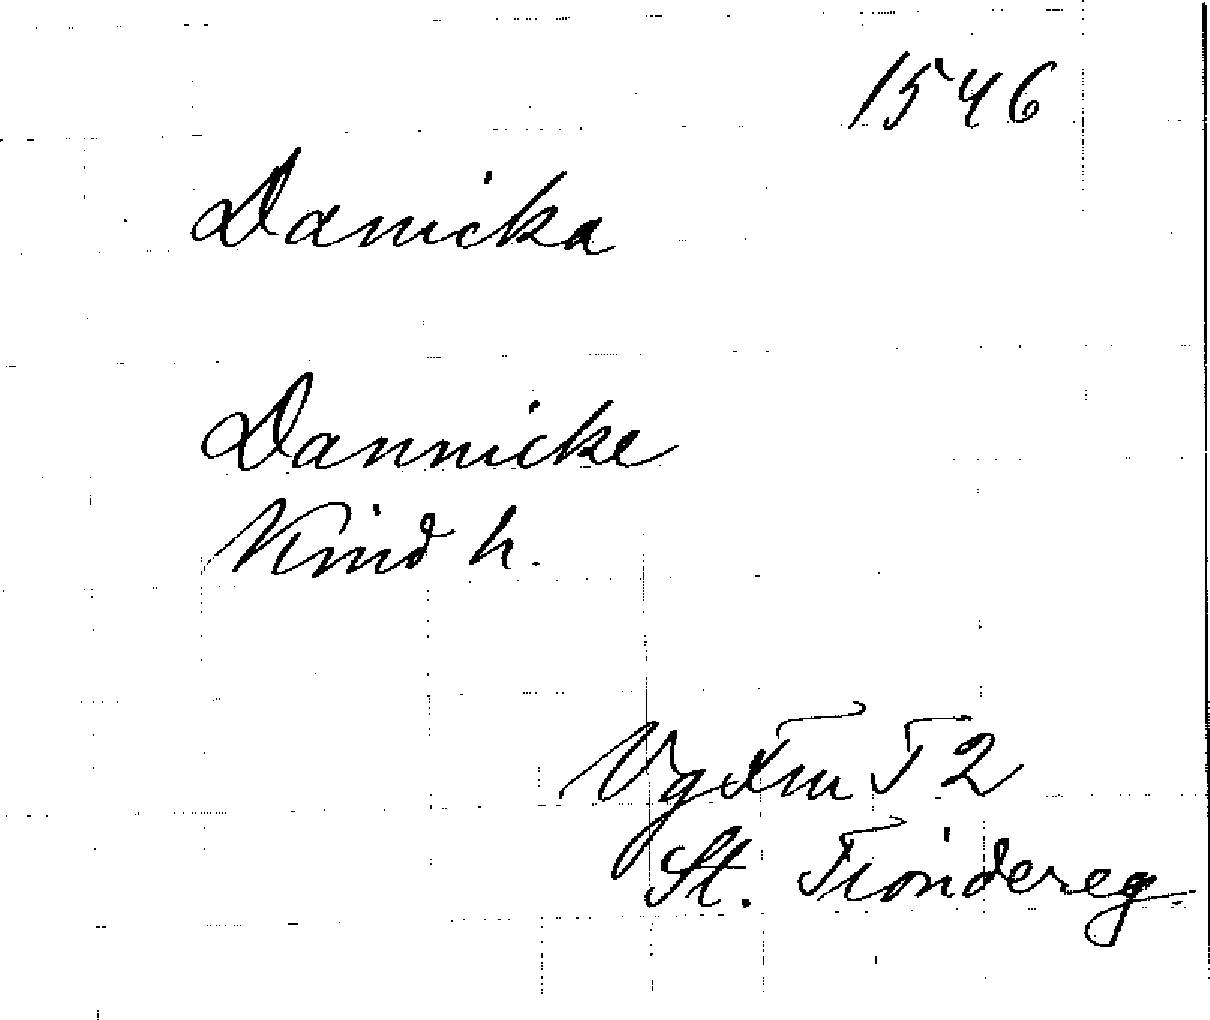 1546
Danicka
Dannicke
Kind h.
Vg Tiu T 2
St. Tiondereg.